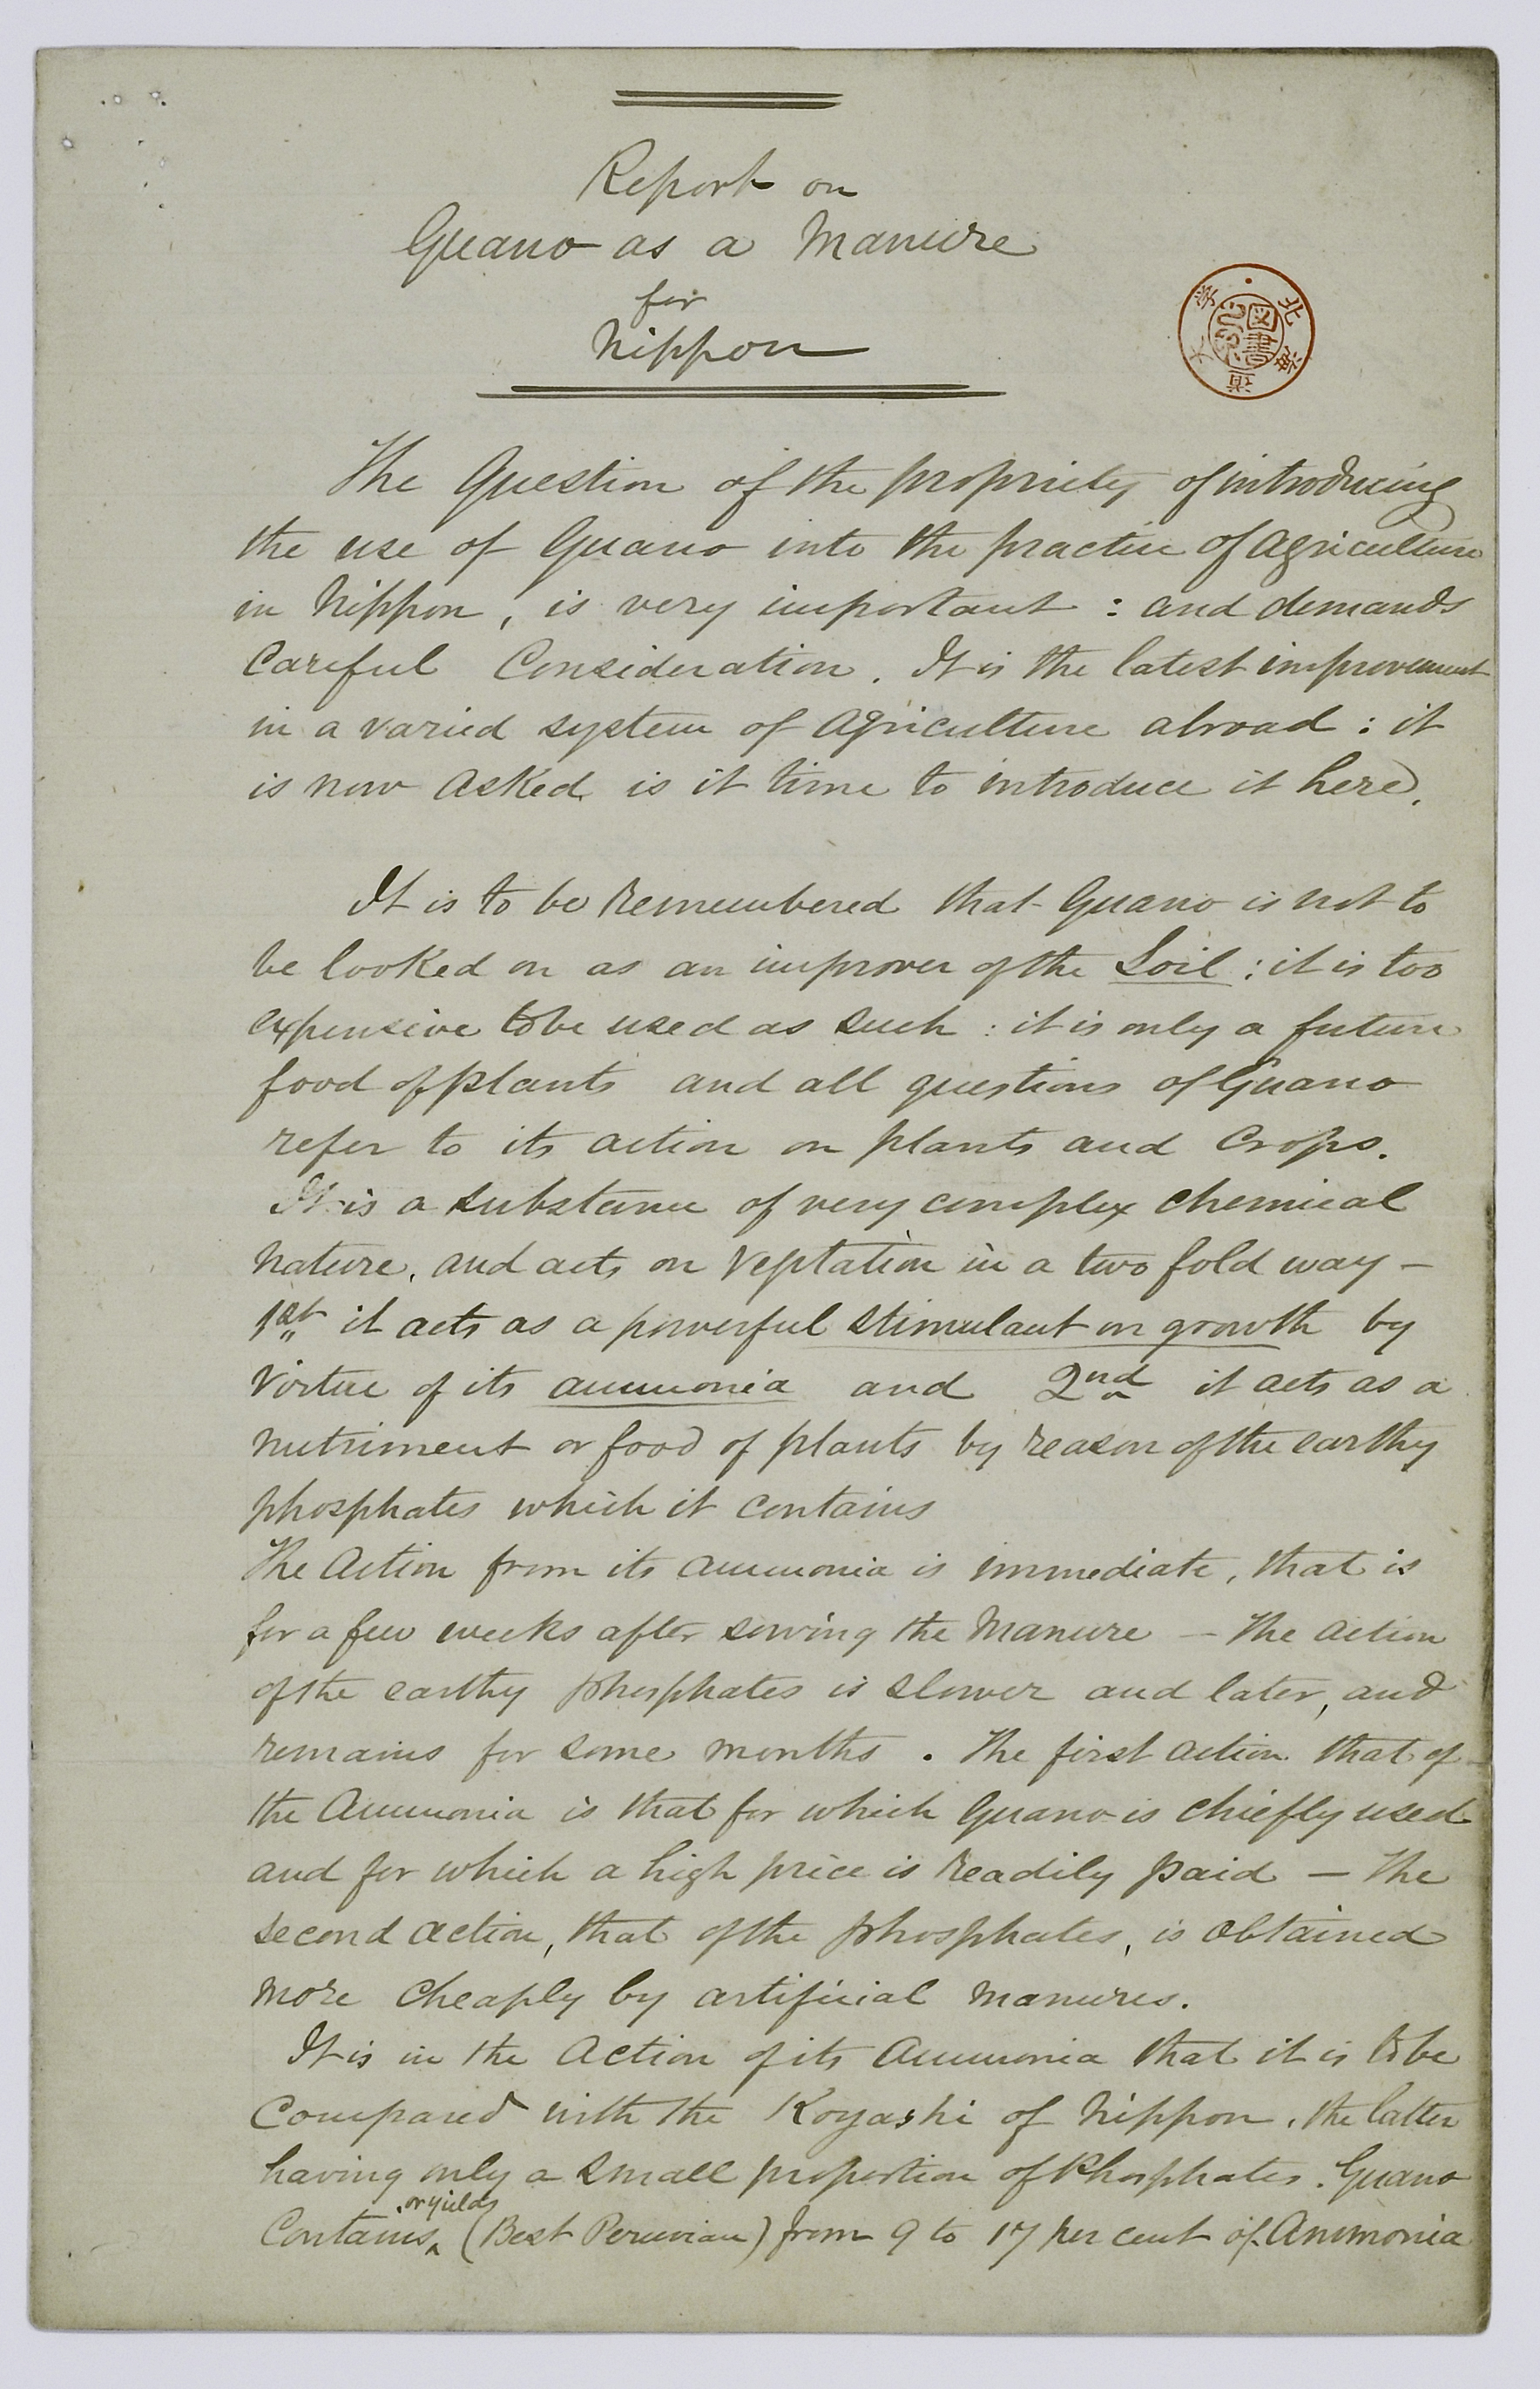 Report on
Guano as a Manure
for
Nippon
北海道大学
図書
The Question of the propriety of introducing
the use of Guano into the practice of Agriculture
in Nippon, is very important : and demands
Careful Consideration. It is the latest improvement
in a varied system of Agriculture abroad : it
is now asked is it time to introduce it here.
It is to be remembered that Guano is not to
be looked on as an improver of the Soil : it is too
expensive to be used as such : it is only a future
food of plants and all questions of Guano
refer to its action on plants and Crops.
It is a substance of very complex chemical
nature, and acts on Veptation in a two fold way –
1st it acts as a powerful stimulant on growth by
Virtue of its ammonia and 2nd it acts as a
nutriment or food of plants by reason of the earthy
phosphates which it contains
The Action from its ammonia is immediate, that is
for a few weeks after sowing the Manure – The action
of the earthy phosphates is slower and later, and
remains for some months . The first action that of
the Ammonia is that for which Guano is chiefly used
and for which a high price is readily paid – The
second action, that of the phosphates, is obtained
more cheaply by artificial manures.
It is in the Action of its Ammonia that it is to be
Compared with the Koyashi of Nippon, the latter
having only a small proportion of Phosphates. Guano
Contains or yields (Best Peruvian) from 9 to 17 per cent of Ammonia